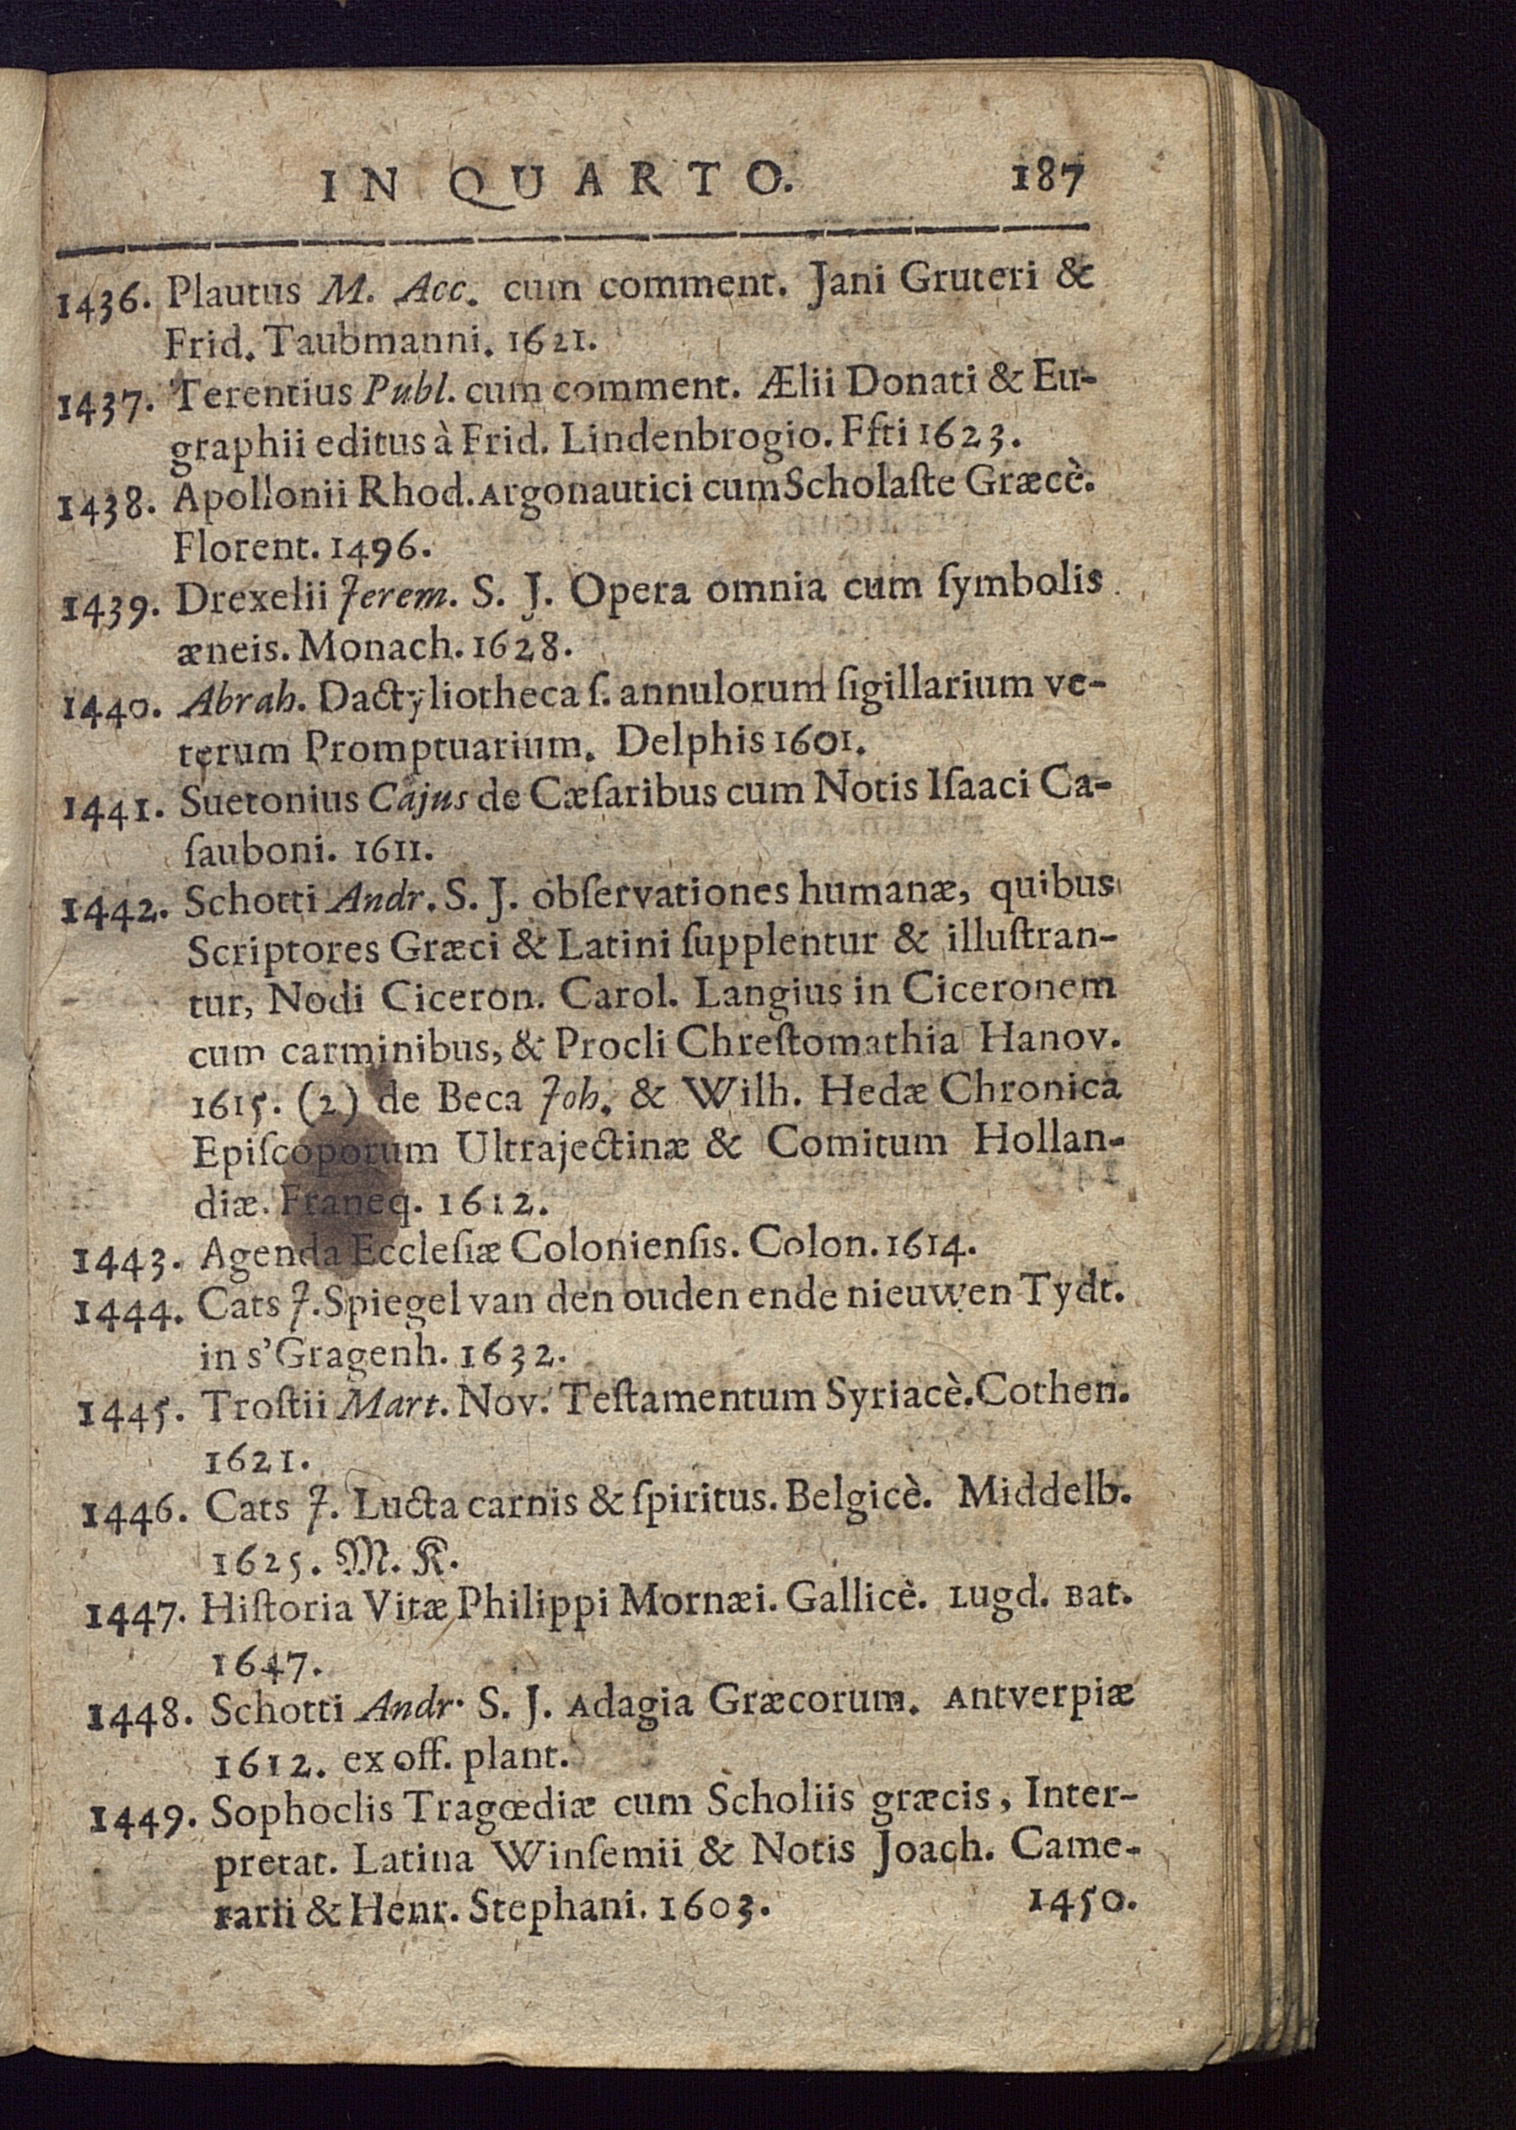 IN QUARTO. 187
1436. Plautus M. Acc. cum comment. Jani Gruteri &
Frid. Taubmanni. 1621.
1437. Terentius Publ. cum comment. Ælii Donati & Eu-
graphii editus à Frid. Lindenbrogio. Ffti 1623.
1438. Apollonii Rhod. Argonautici cum Scholaſte Græcè.
Florent. 1496.
1439. Drexelii Jerem. S. J. Opera omnia cum ſymbolis
æneis. Monach. 1628.
1440. Abrah. Dactyliotheca ſ. annulorum ſigillarium ve-
terum Promptuarium. Delphis 1601.
1441. Suetonius Cajus de Cæſaribus cum Notis Iſaaci Ca-
ſauboni. 1611.
1442. Schotti Andr. S. J. obſervationes humanæ, quibus
Scriptores Græci & Latini ſupplentur & illuſtran-
tur, Nodi Ciceron. Carol. Langius in Ciceronem
cum carminibus, & Procli Chreſtomathia Hanov.
1615. (2) de Beca Joh. & Wilh. Hedæ Chronica
Epiſcoporum Ultrajectinæ & Comitum Hollan-
diæ. Franeq. 1612.
1443. Agenda Eccleſiæ Colonienſis. Colon. 1614.
1444. Cats J. Spiegel van den ouden ende nieuwen Tydt.
in s'Gragenh. 1632.
1445. Troſtii Mart. Nov. Teſtamentum Syriacè. Cothen.
1621.
1446. Cats J. Lucta carnis & ſpiritus. Belgicè. Middelb.
1625. M. K.
1447. Hiſtoria Vitæ Philippi Mornæi. Gallicè. Lugd. Bat.
1647.
1448. Schotti Andr. S. J. Adagia Græcorum. Antverpiæ
1612. ex off. plant.
1449. Sophoclis Tragœdiæ cum Scholiis græcis, Inter-
pretat. Latina Winſemii & Notis Joach. Came-
rarii & Henr. Stephani. 1603. 1450.